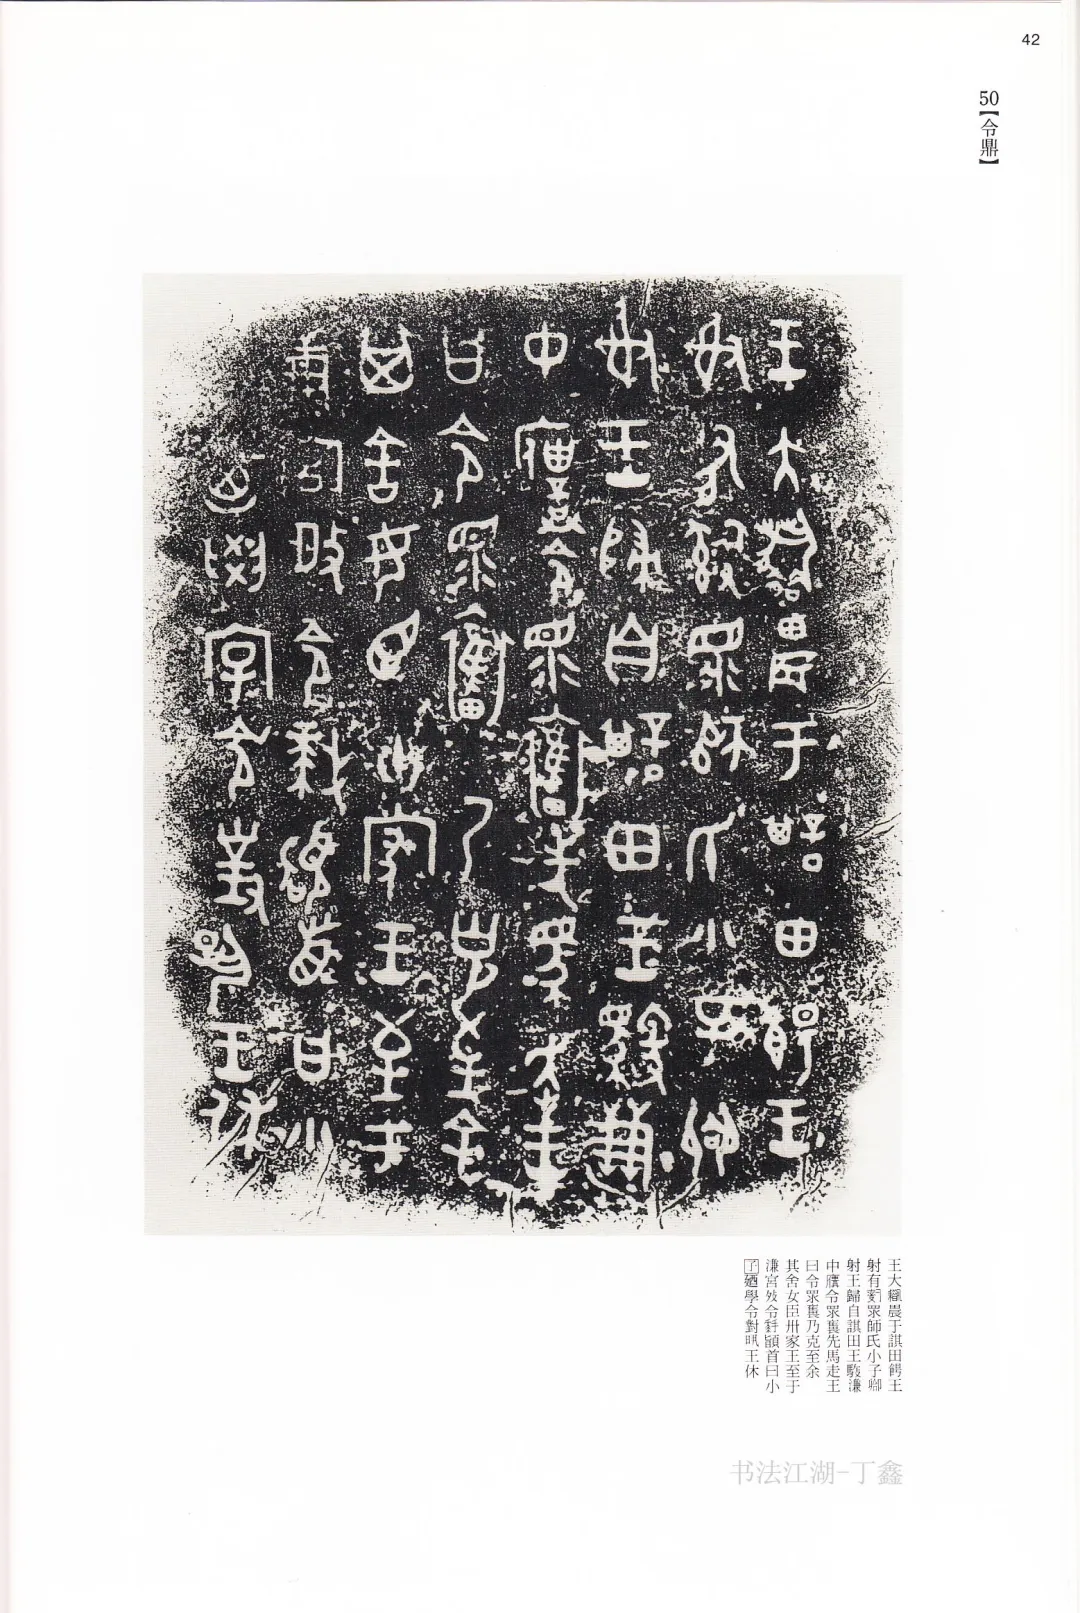 42
50【令鼎】
王大耤農于諆田餳王
射有𤔲眔師氏小子㗬
射王歸自諆田王馭溓
中𠊱令眔奮先馬走王
曰令眔奮乃克至余
其舍女臣卅家王至于
溓宮𢼛令拜䭫首曰小
子廼學令對𭥍王休
书法江湖-丁鑫